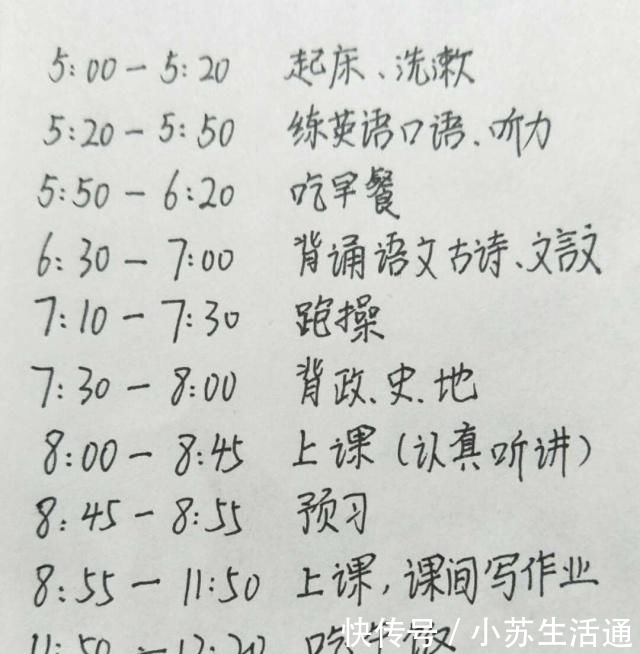 5:00 — 5:20 起床、洗漱
5:20 — 5:50 练英语口语、听力
5:50 — 6:20 吃早餐
6:30 — 7:00 背诵语文古诗、文言文
7:10 — 7:30 跑操
7:30 — 8:00 背政、史、地
8:00 — 8:45 上课(认真听讲)
8:45 — 8:55 预习
8:55 — 11:50 上课,课间写作业
11:50 — 12:20 吃
快传号 / 小苏生活通